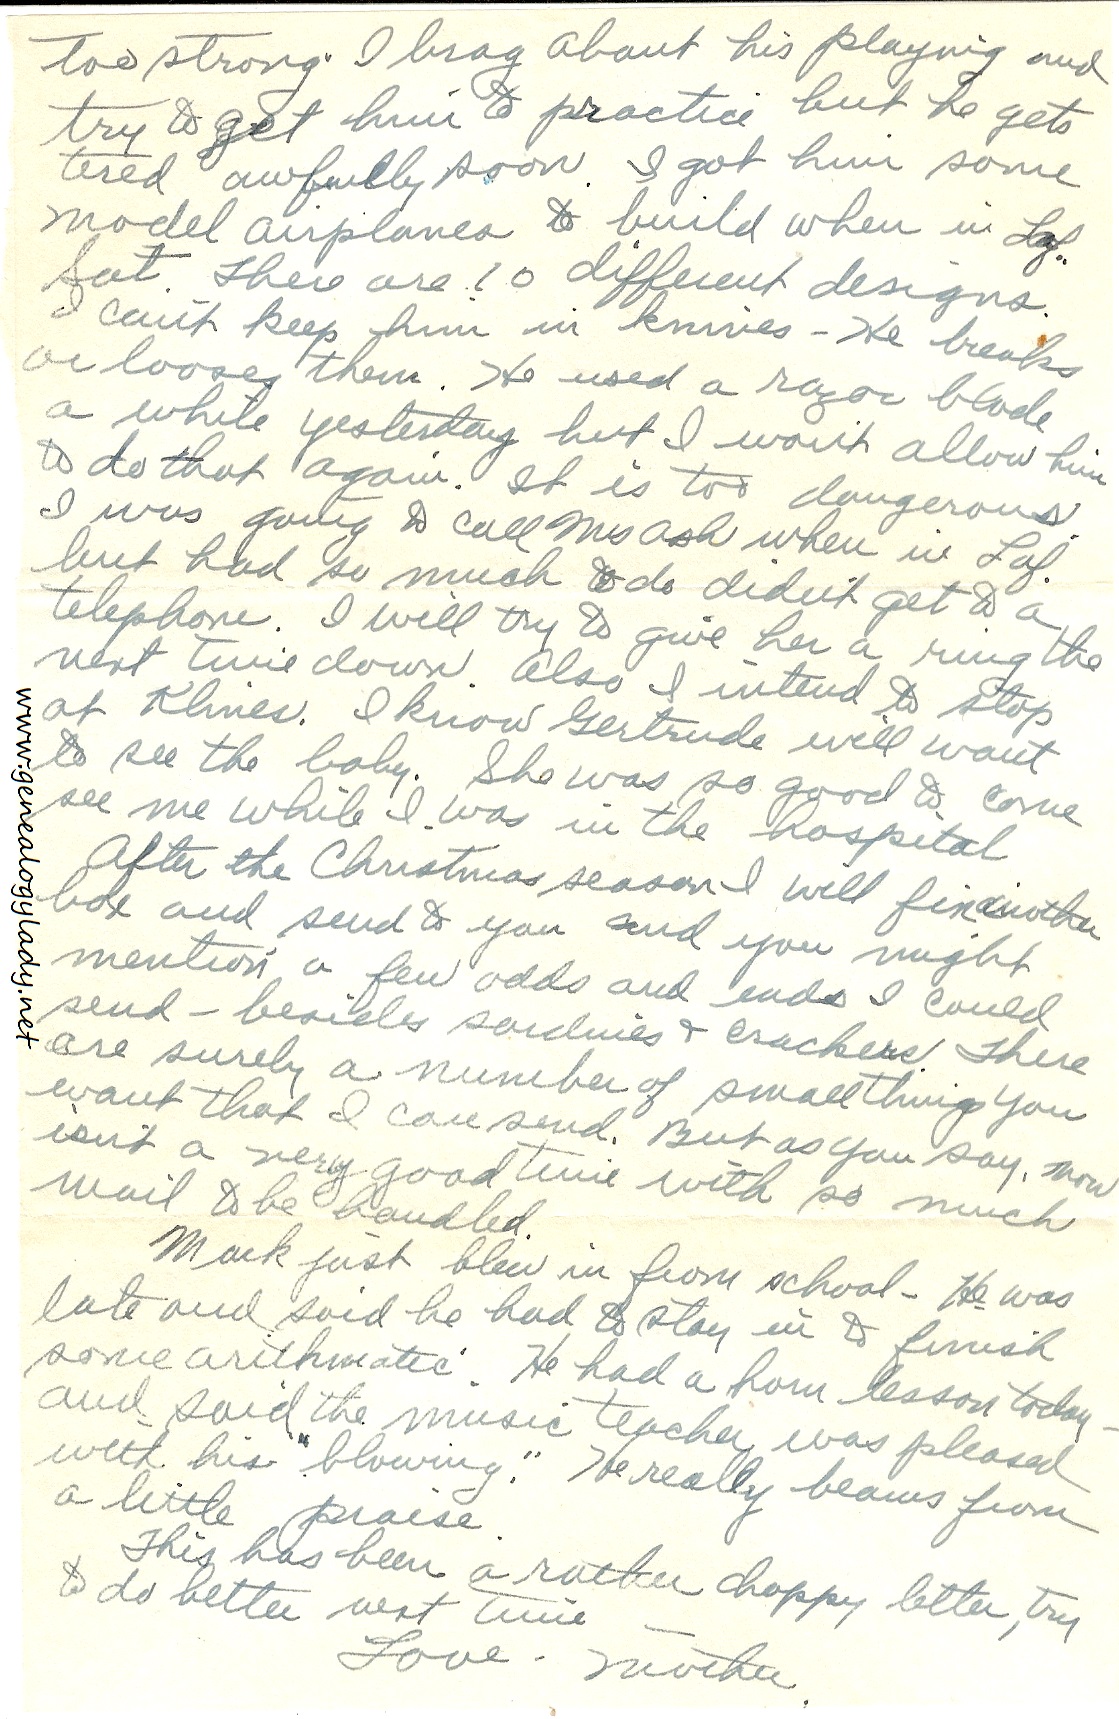 too strong. I brag about his playing and
try to get him to practice but he gets
tired awfully soon. I got him some
model airplanes to build when in Laf.
Sat. There are 10 different designs.
I can't keep him in knives - He breaks
or looses them. He used a razor blade
a while yesterday but I won't allow him
to do that again. It is too dangerous
I was going to call Mrs Ash when in Laf.
but had so much to do didn't get to a
telephone. I will try to give her a ring the
next time down. Also I intend to stop
at Klines. I know Gertrude will want
to see the baby. She was so good to come
see me while I was in the hospital
After the Christmas season I will find another
box and send to you and you might
mention a few odds and ends I could
send - besides sardines & crackers. There
are surely a number of small things you
want that I can send. But as you say, now
isn't a very good time with so much
mail to be handled.
Mark just blew in from school - He was
late and said he had to stay in to finish
some arithmatic. He had a horn lesson today -
and said the music teacher was pleased
with his "blowing." He really beams from
a little praise.
This has been a rather choppy letter, try
to do better next time -
Love - Mother.
www.genealogylady.net